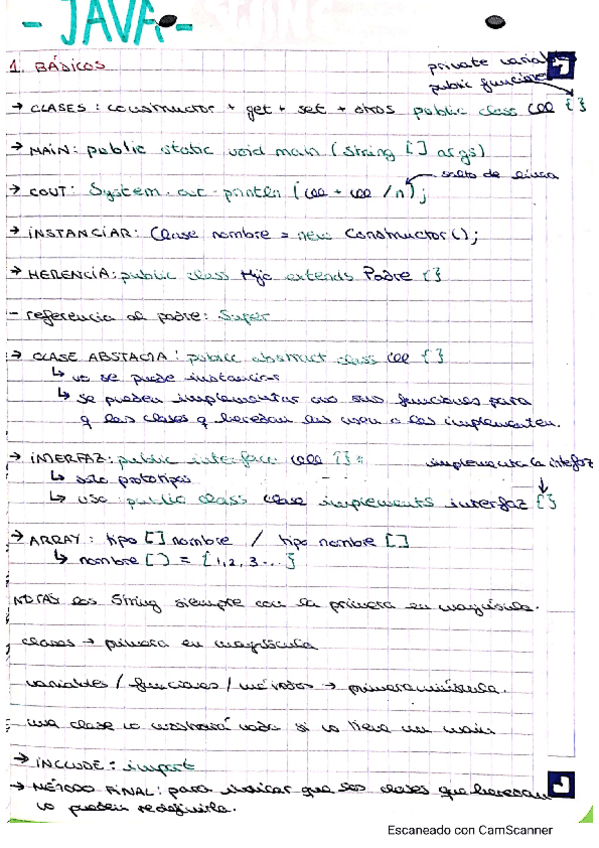 - JAVA -
1. BÁSICOS
private variables
public funciones
→ CLASES: constructor + get + set + otros public class {}
→ MAIN: public static void main (String [] args)
salto de línea
→ COUT: System.out.println ( + /n);
→ INSTANCIAR: Clase nombre = new Constructor();
→ HERENCIA: public class Hijo extends Padre {}
- referencia al padre: Super
→ CLASE ABSTACTA: public abstract class {}
↳ no se puede instanciar
↳ se pueden implementar sus funciones para
q las clases q heredan las usen o las implementen.
→ INTERFAZ: public interface {}
implementa la interfaz
↳ solo prototipos
↳ uso: public class clase implements interfaz {}
→ ARRAY: tipo [] nombre / tipo nombre []
↳ nombre [] = {1,2,3...}
NOTAS los String siempre con la primera en mayúscula.
clases → primera en mayúscula
variables / funciones / métodos → primera minúscula.
una clase no mostrará nada si no tiene un main
→ INCLUDE: import
→ MÉTODO FINAL: para indicar que las clases que heredan
no pueden redefinirla.
Escaneado con CamScanner